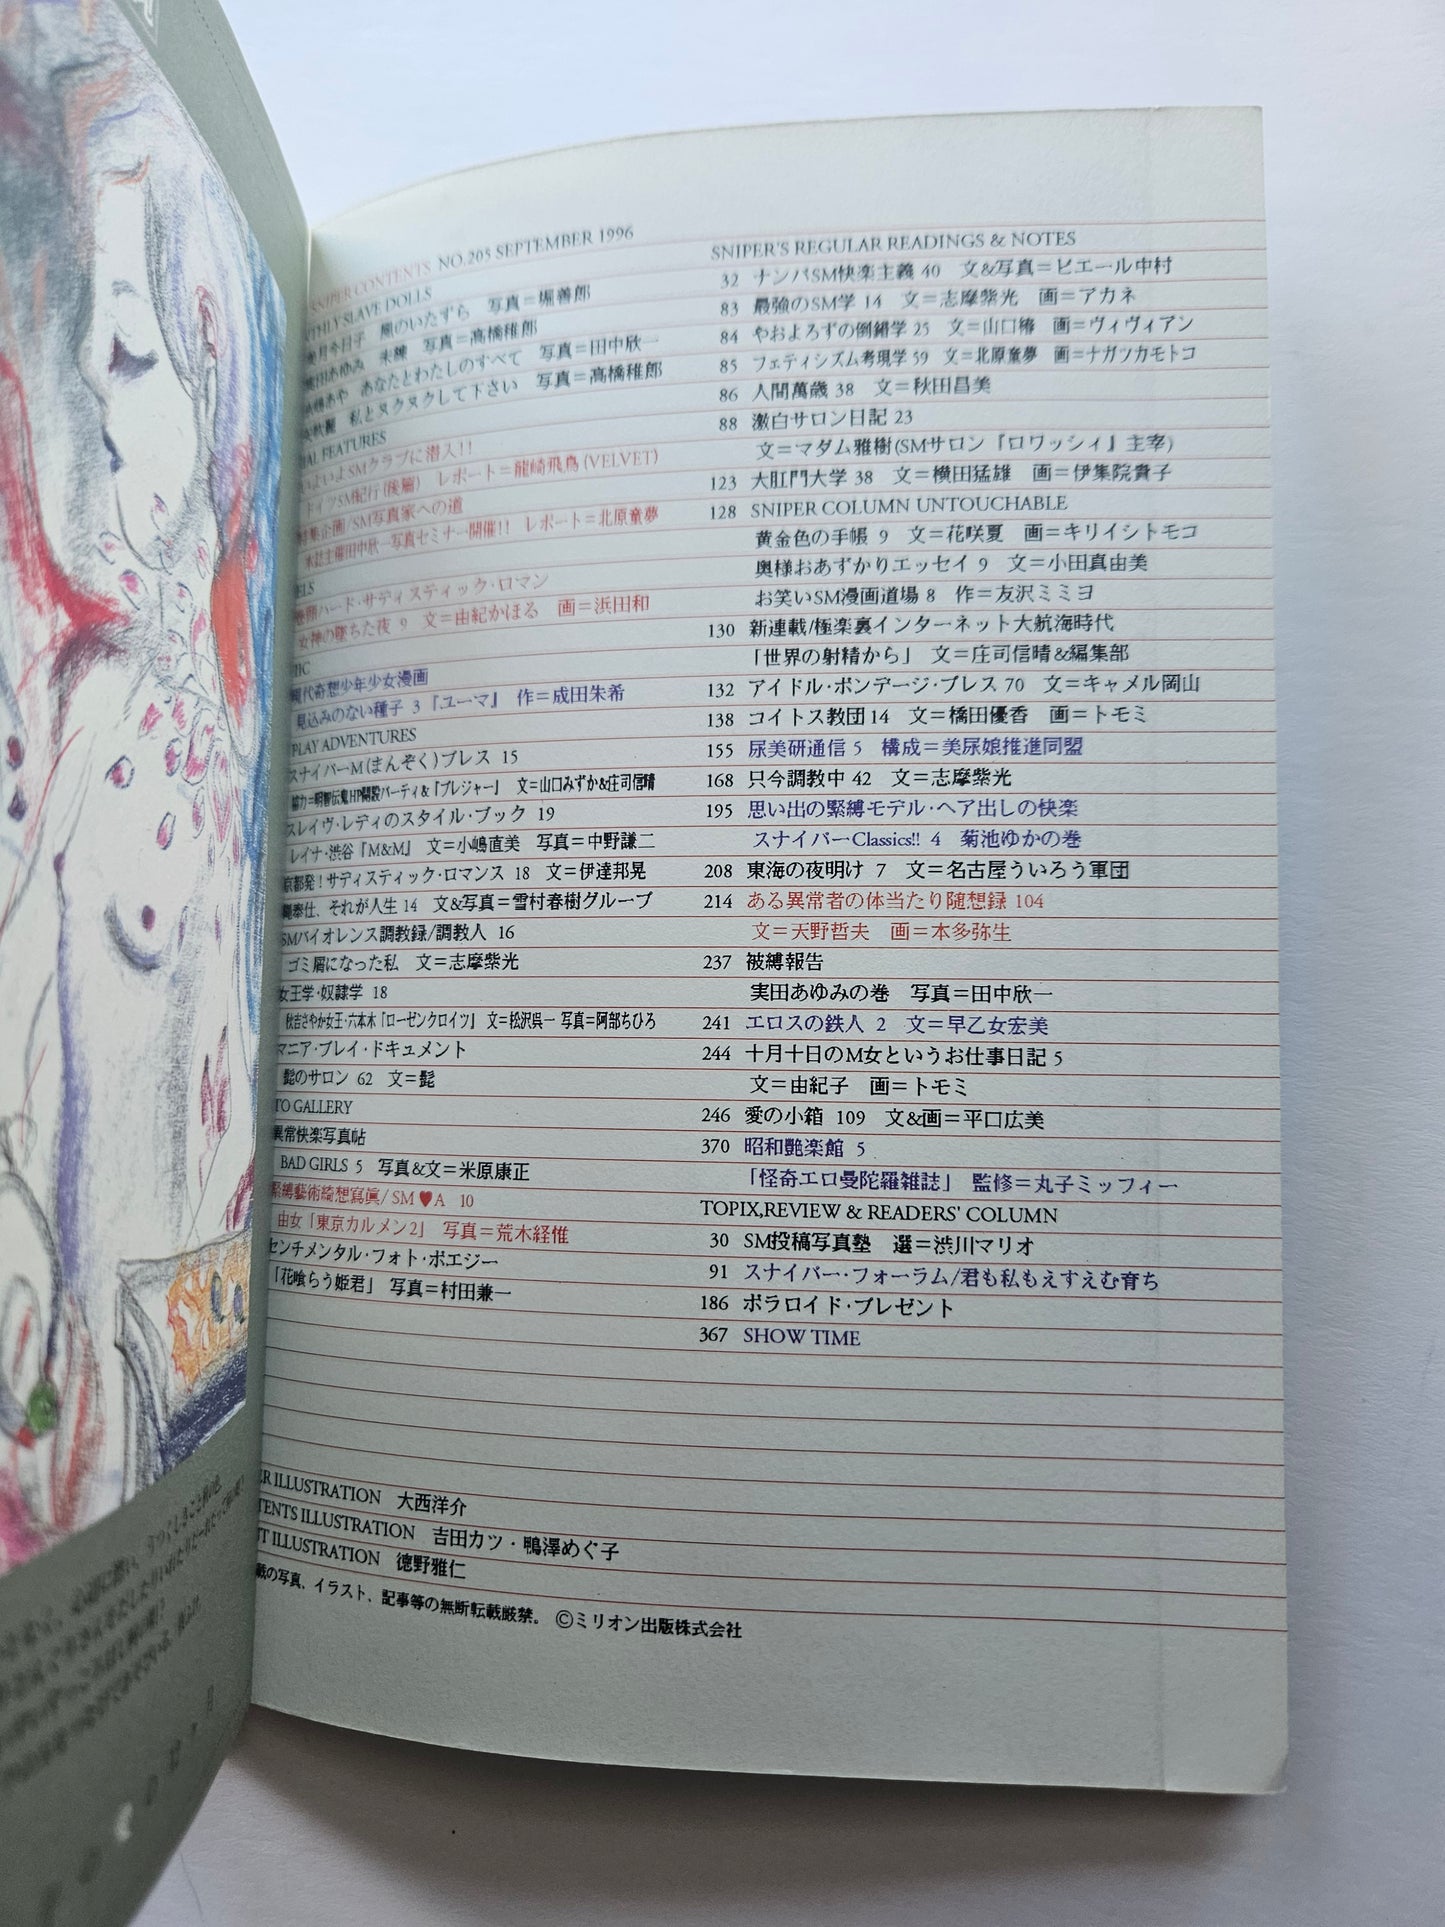 SNIPER CONTENTS NO.205 SEPTEMBER 1996
SLAVE DOLLS
風のいたずら 写真=堀善郎
写真=高橋稚郎
あなたとわたしのすべて 写真=田中欣一
私とヌクヌクして下さい 写真=高橋稚郎
FEATURES
いよいよSMクラブに潜入!!
ドイツSM紀行(後篇) レポート=龍崎飛鳥(VELVET)
企画/SM写真家への道
本誌主催田中欣一写真セミナー開催!! レポート=北原童夢
ハード・サディスティック・ロマン
女神の墜ちた夜 9 文=由紀かほる 画=浜田和
現代奇想少年少女漫画
見込みのない種子 3 『ユーマ』 作=成田朱希
PLAY ADVENTURES
スナイパーM(まんぞく)プレス 15
協力=明智伝鬼HP開設パーティ&『プレジャー』 文=山口みずか&庄司信晴
スレイヴ・レディのスタイル・ブック 19
レイナ・渋谷『M&M』 文=小嶋直美 写真=中野謙二
京都発!サディスティック・ロマンス 18 文=伊達邦晃
縄奉仕、それが人生 14 文&写真=雪村春樹グループ
SMバイオレンス調教録/調教人 16
ゴミ屑になった私 文=志摩紫光
女王学・奴隷学 18
秋吉さやか女王・六本木『ローゼンクロイツ』 文=松沢呉一 写真=阿部ちひろ
マニア・プレイ・ドキュメント
髭のサロン 62 文=髭
GALLERY
異常快楽写真帖
BAD GIRLS 5 写真&文=米原康正
緊縛藝術綺想寫眞/SM♥A 10
由女「東京カルメン2」 写真=荒木経惟
センチメンタル・フォト・ポエジー
「花喰らう姫君」 写真=村田兼一
SNIPER'S REGULAR READINGS & NOTES
32 ナンパSM快楽主義 40 文&写真=ピエール中村
83 最強のSM学 14 文=志摩紫光 画=アカネ
84 やおよろずの倒錯学 25 文=山口椿 画=ヴィヴィアン
85 フェティシズム考現学 59 文=北原童夢 画=ナガツカモトコ
86 人間萬歳 38 文=秋田昌美
88 激白サロン日記 23
文=マダム雅樹(SMサロン『ロワッシィ』主宰)
123 大肛門大学 38 文=横田猛雄 画=伊集院貴子
128 SNIPER COLUMN UNTOUCHABLE
黄金色の手帳 9 文=花咲夏 画=キリイシトモコ
奥様おあずかりエッセイ 9 文=小田真由美
お笑いSM漫画道場 8 作=友沢ミミヨ
130 新連載/極楽裏インターネット大航海時代
「世界の射精から」 文=庄司信晴&編集部
132 アイドル・ボンデージ・プレス 70 文=キャメル岡山
138 コイトス教団 14 文=橋田優香 画=トモミ
155 尿美研通信 5 構成=美尿娘推進同盟
168 只今調教中 42 文=志摩紫光
195 思い出の緊縛モデル・ヘア出しの快楽
スナイパーClassics!! 4 菊池ゆかの巻
208 東海の夜明け 7 文=名古屋ういろう軍団
214 ある異常者の体当たり随想録 104
文=天野哲夫 画=本多弥生
237 被縛報告
実田あゆみの巻 写真=田中欣一
241 エロスの鉄人 2 文=早乙女宏美
244 十月十日のM女というお仕事日記 5
文=由紀子 画=トモミ
246 愛の小箱 109 文&画=平口広美
370 昭和艶楽館 5
「怪奇エロ曼陀羅雑誌」 監修=丸子ミッフィー
TOPIX,REVIEW & READERS' COLUMN
30 SM投稿写真塾 選=渋川マリオ
91 スナイパー・フォーラム/君も私もえすえむ育ち
186 ポラロイド・プレゼント
367 SHOW TIME
ILLUSTRATION 大西洋介
ILLUSTRATION 吉田カツ・鴨澤めぐ子
ILLUSTRATION 徳野雅仁
載の写真、イラスト、記事等の無断転載厳禁。 ©ミリオン出版株式会社